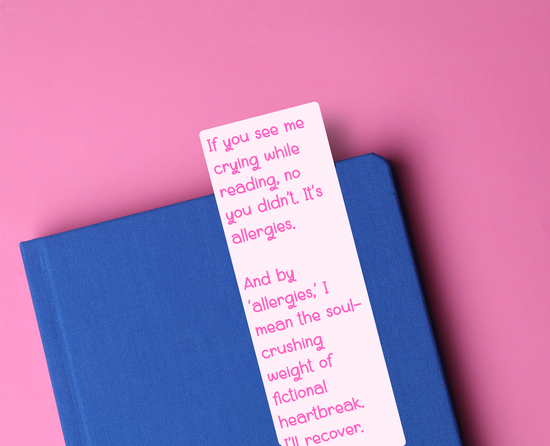 If you see me
crying while
reading, no
you didn't. It's
allergies.
And by
'allergies,' I
mean the soul-
crushing
weight of
fictional
heartbreak.
I'll recover.